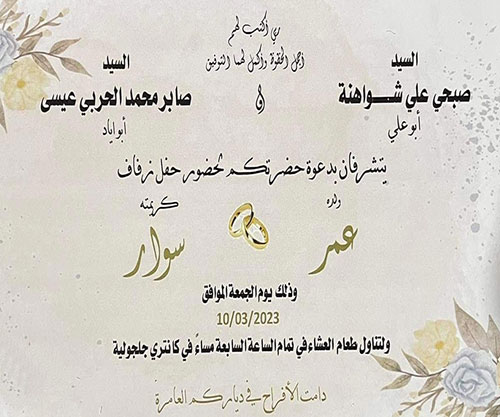 ربي أكتب لهم
أجل الحقوة وأكمل لهما التوفيق
السيد
صبحي علي شـــواهنة
أبو علي
و
السيد
صابر محمد الحربي عيسى
أبو اياد
يتشرفان بدعوة حضرتكم لحضور حفل زفاف
ولده
عمر
كريمته
سوار
وذلك يوم الجمعة الموافق
10/03/2023
ولتناول طعام العشاء في تمام الساعة السابعة مساءً في كانتري جلجولية
دامت الأفراح في دياركم العامرة